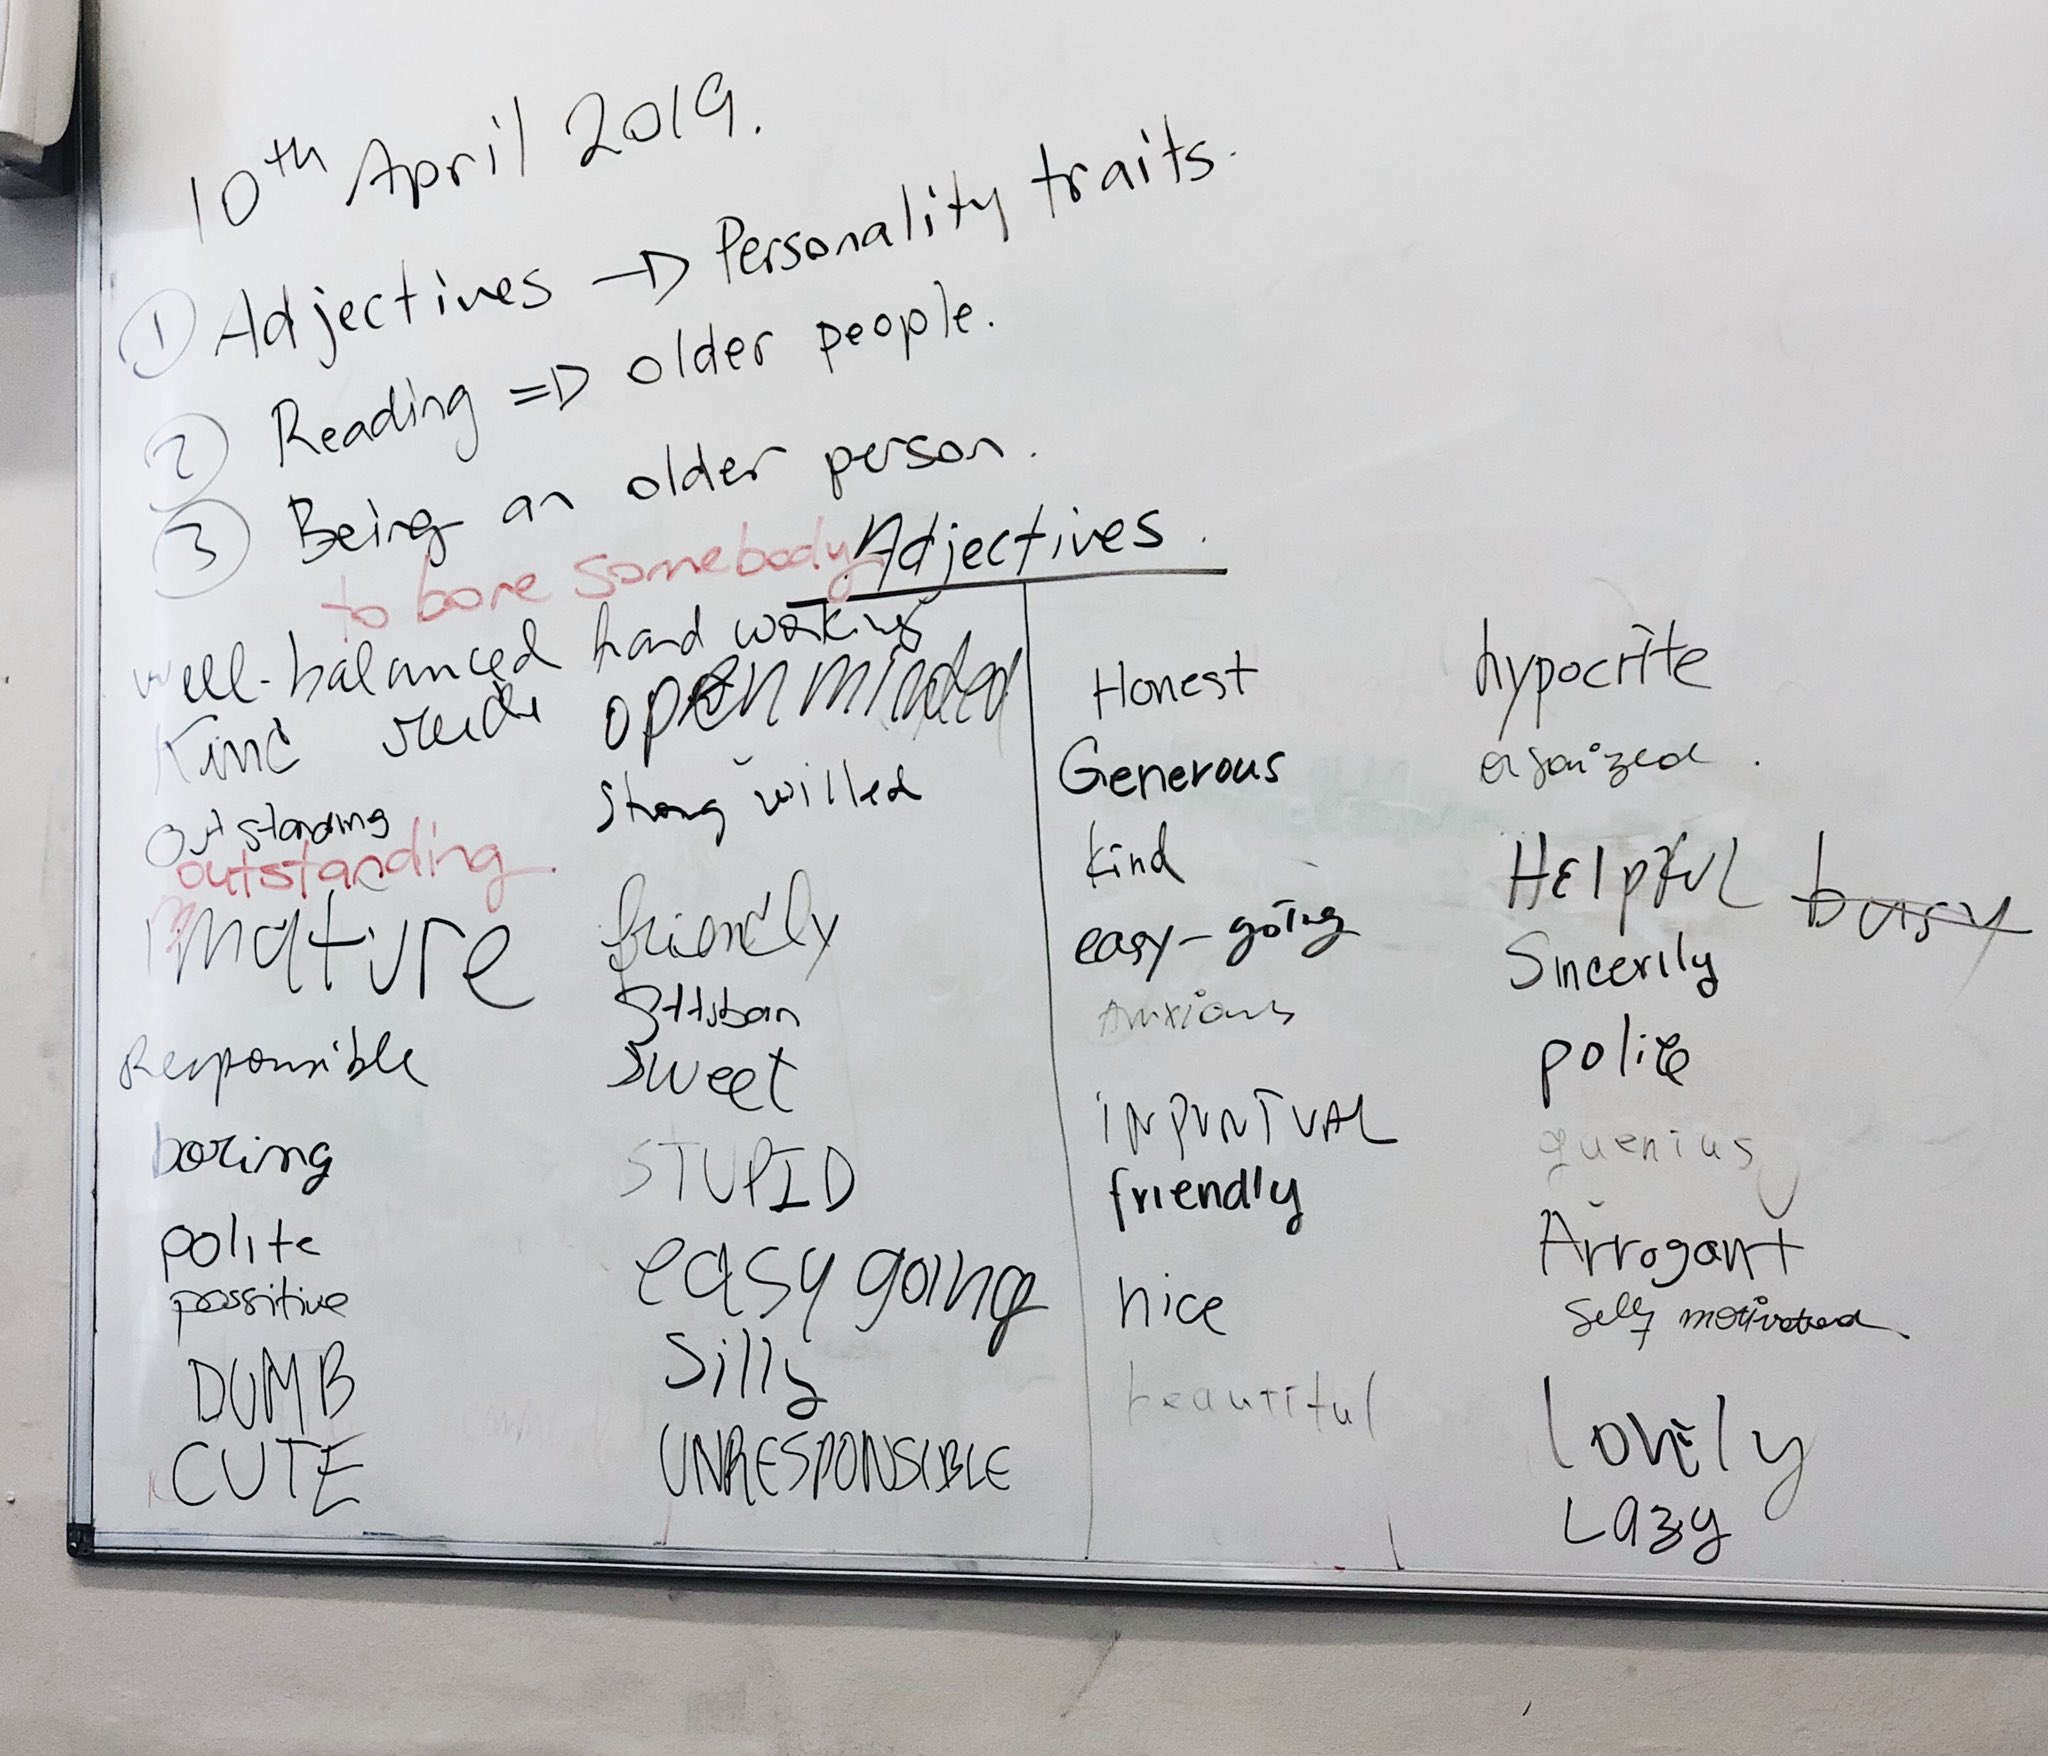 10th April 2019.
① Adjectives → Personality traits.
② Reading ⇒ older people.
③ Being an older person.
to bore somebody
Adjectives.
well-balanced hard working
Kind
open minded
outstanding
strong willed
outstanding
immature
friendly
Responsible
sweet
boring
STUPID
polite
easy going
possitive
DUMB
Silly
CUTE
UNRESPONSIBLE
Honest
hypocrite
Generous
organized.
kind
Helpful busy
easy-going
Sincerily
Anxious
polite
INPUNTUAL
quenius
friendly
Arrogant
nice
Self motivated
beautiful
lovely
Lazy